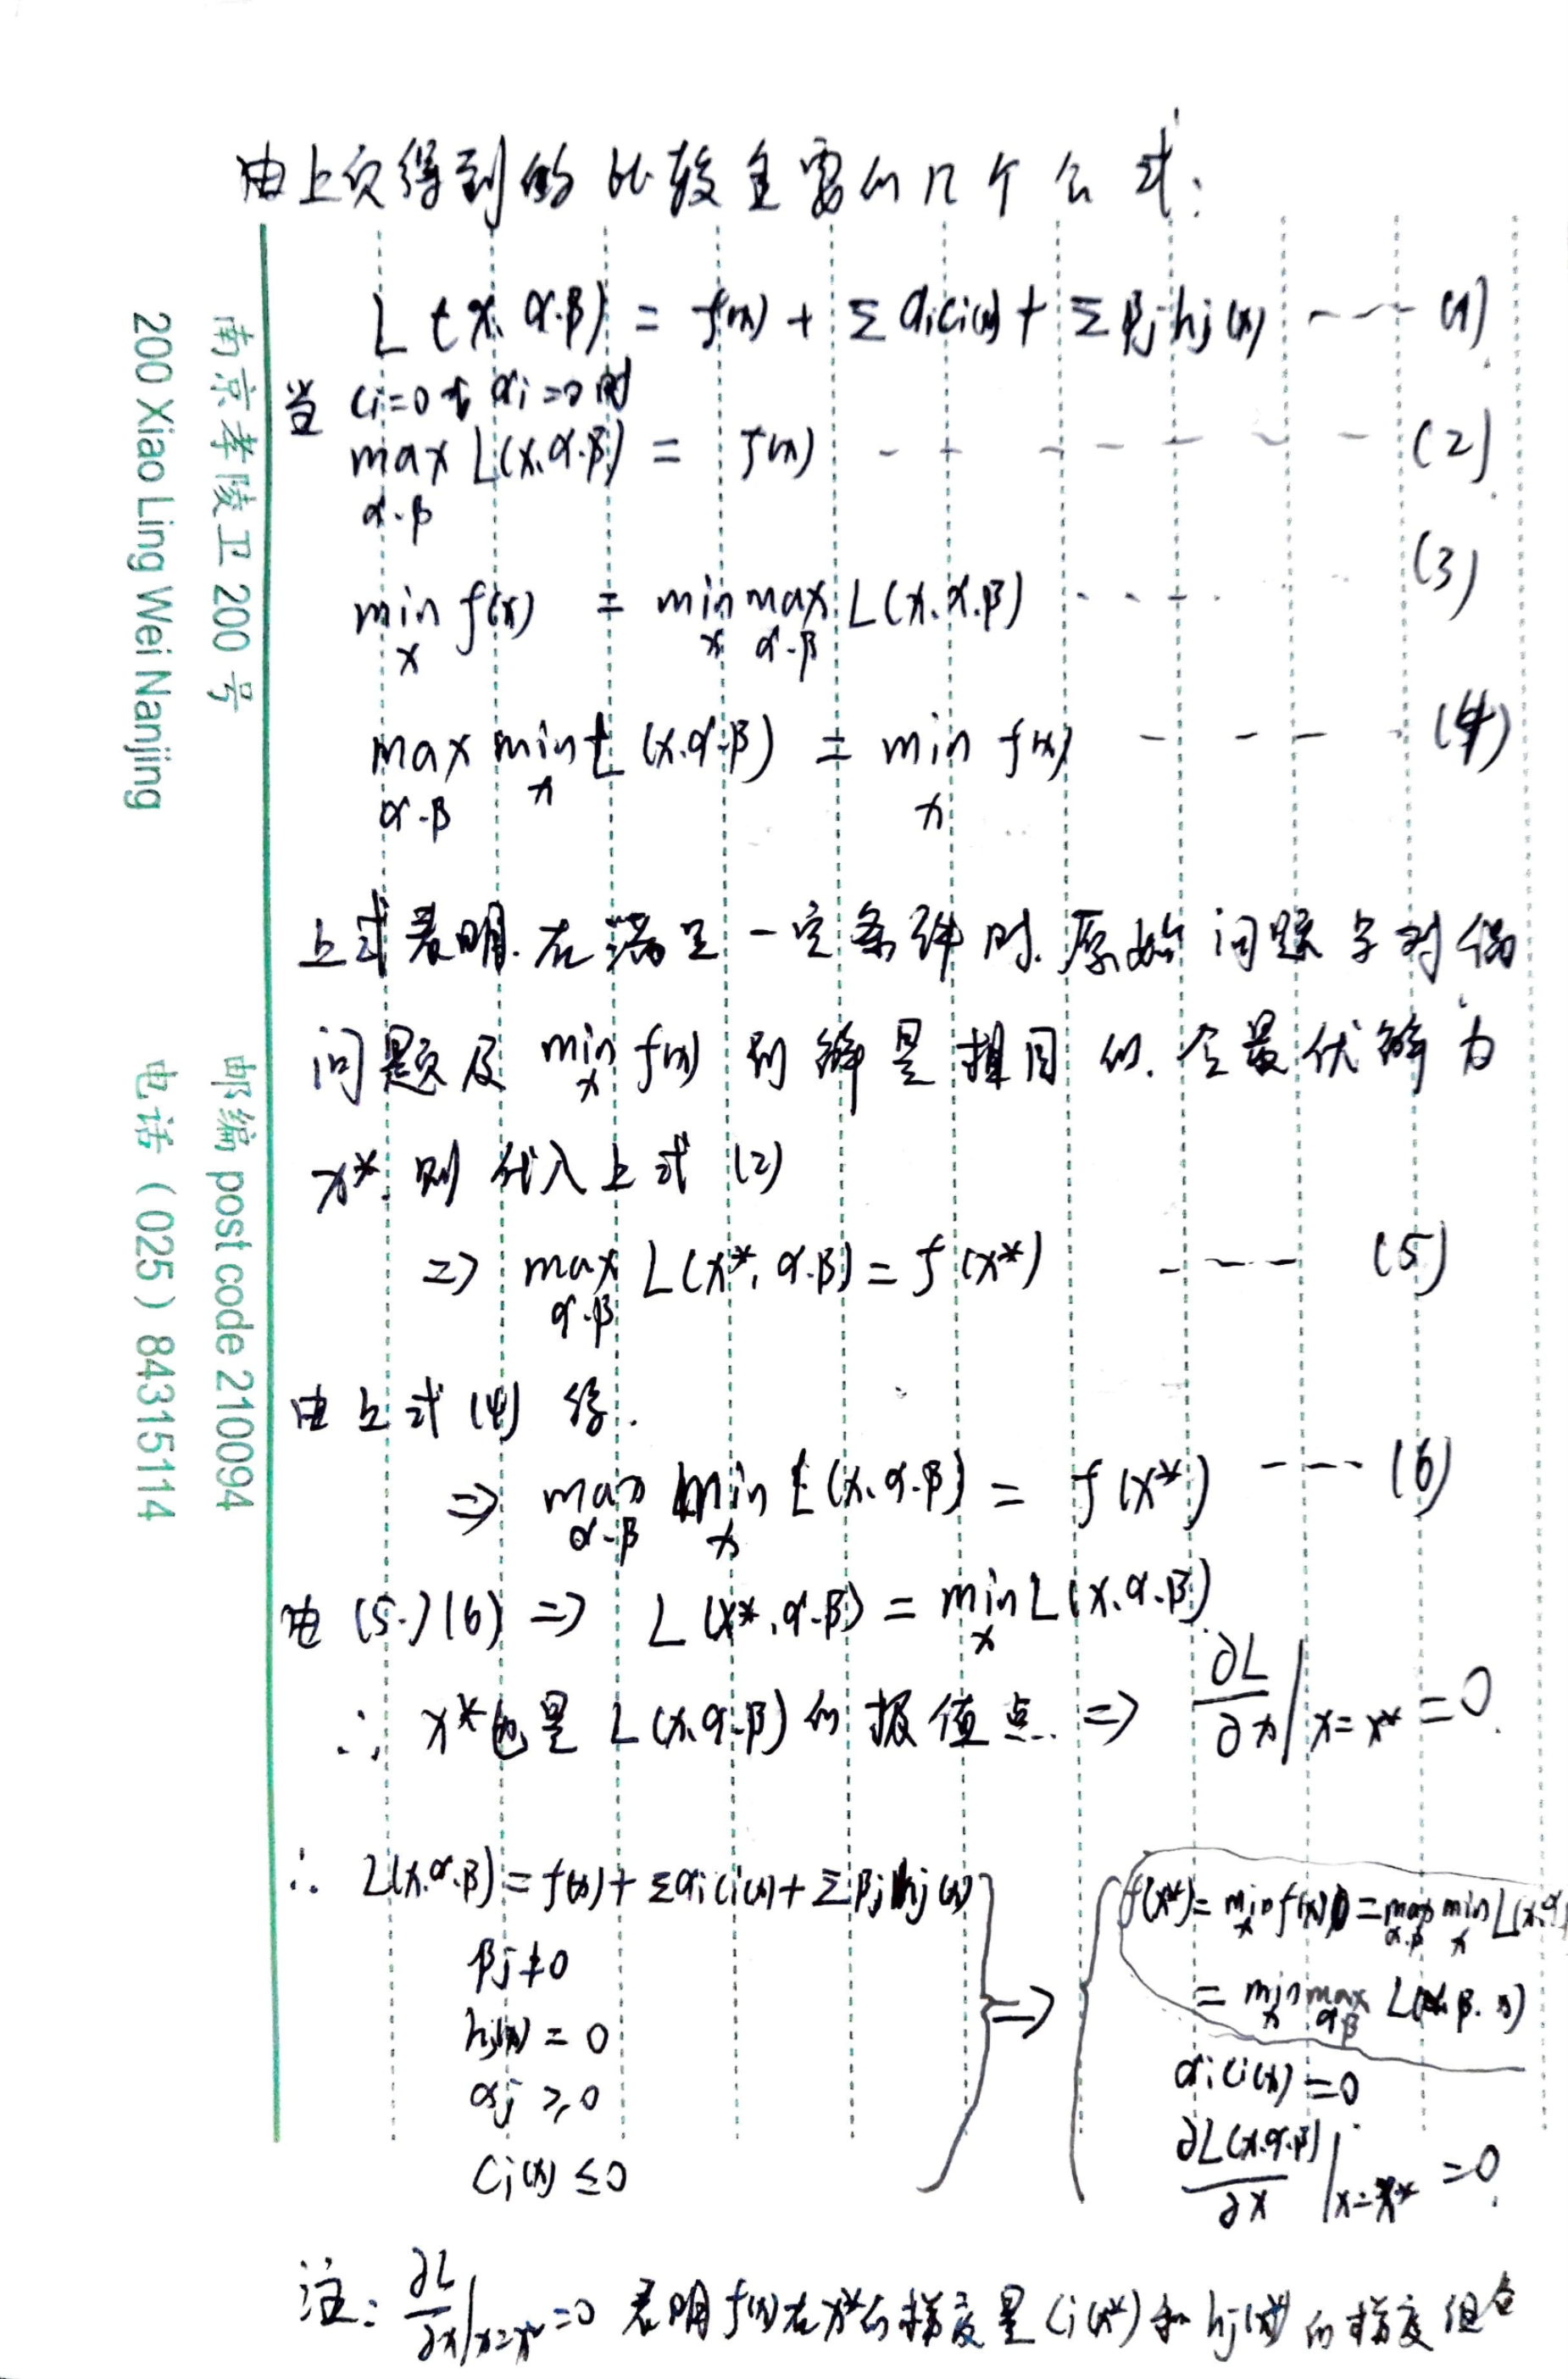 由上页得到的比较重要的几个公式:
L(x.α.β) = f(x) + Σαici(x) + Σβjhj(x) ---- (1)
当 ci=0或αi=0时
max L(x.α.β) = f(x) ------- (2)
α.β
min f(x) = min max L(x.α.β) ---- (3)
x x α.β
max min L(x.α.β) = min f(x) ---- (4)
α.β x x
上式表明.在满足一定条件时.原始问题与对偶
问题及 min f(x) 的解是相同的.令最优解为
x
x*.则代入上式(2)
=> max L(x*.α.β) = f(x*) ---- (5)
α.β
由上式(4)得.
=> max min L(x.α.β) = f(x*) ---- (6)
α.β x
由(5.)(6) => L(x*.α.β) = min L(x.α.β)
x
∴ x*也是L(x.α.β)的极值点. => ∂L/∂x|x=x* = 0.
∴ L(x.α.β) = f(x) + Σαici(x) + Σβjhj(x)
βj≠0
hj(x) = 0
αj ≥ 0
Ci(x) ≤ 0
=>
f(x*) = min f(x) = max min L(x.α
x α.β x
= min max L(α.β.x)
x α.β
αici(x) = 0
∂L(x.α.β)/∂x|x=x* = 0.
注: ∂L/∂x|x=x* = 0 表明f(x)在x*的梯度是Ci(x*)和hj(x*)的梯度组合
南京孝陵卫200号
200 Xiao Ling Wei Nanjing
邮编 post code 210094
电话（025）84315114